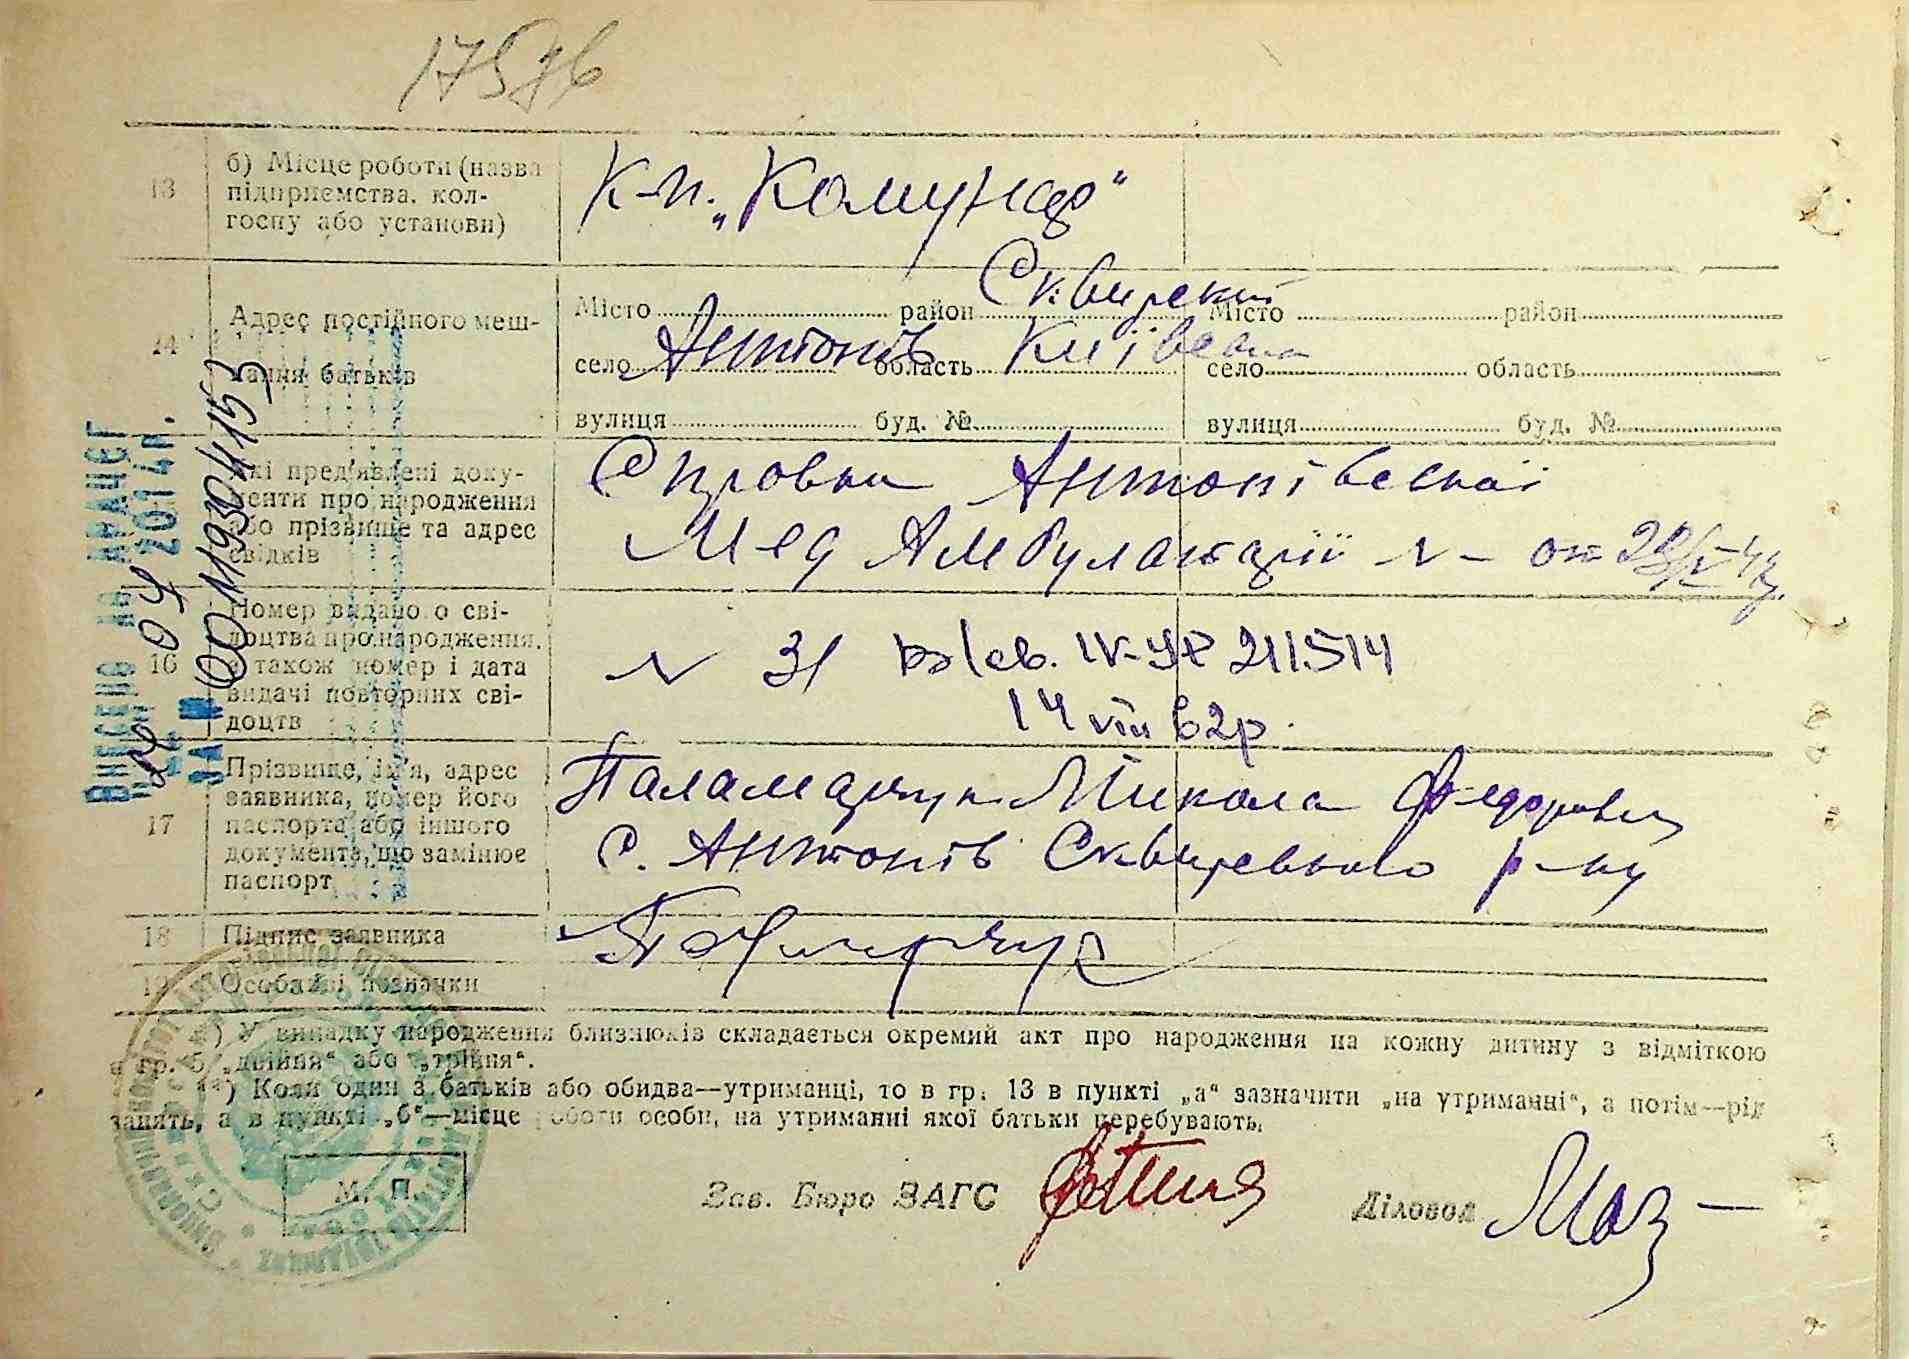 17576
13
б) Місце роботи (назва
підприємства, кол-
госпу або установи)
К-п. „Комунар“
14
Адрес постійного меш-
кання батьків
Місто район Сквирский
село Антонів область Київська
вулиця буд. №
Місто район
село область
вулиця буд. №
Які пред'явлені доку-
менти про народження
або прізвище та адрес
свідків
Справка Антонівської
Мед Амбулаторії № — от
16
Номер видано о сві-
доцтва про народження,
а також номер і дата
видачі повторних сві-
доцтв
№ 31 св. IV-УР 211514
14 VIII 62р.
17
Прізвище, ім'я, адрес
заявника, номер його
паспорта або іншого
документа, що замінює
паспорт
Паламарчук Микола Федорович
с. Антонів Сквирського р-ну
18
Підпис заявника
19
Особливі позначки
*) У випадку народження близнюків складається окремий акт про народження на кожну дитину з відміткою
в гр. 6 „двійня“ або „трійня“.
**) Коли один з батьків або обидва—утриманці, то в гр. 13 в пункті „а“ зазначити „на утриманні“, а потім—рід
занять, а в пункті „б“—місце роботи особи, на утриманні якої батьки перебувають.
М. П.
Зав. Бюро ЗАГС
Діловод
ВНЕСЕНО ДО ДРАЦСГ
04 2014р.
ЗА № 00119304153